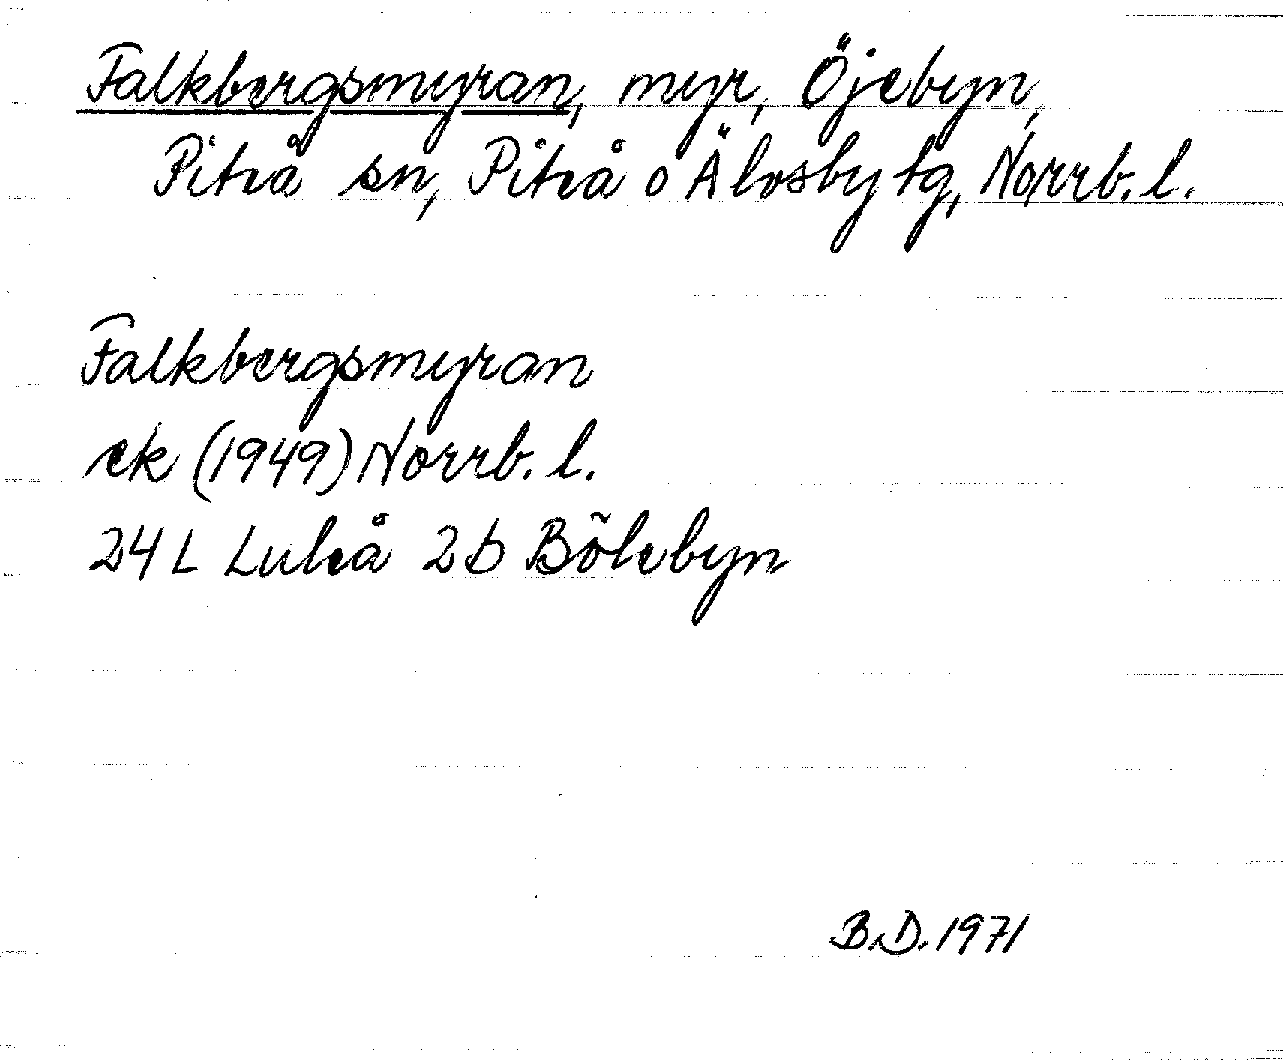 Falkbergsmyran, myr, Öjebyn,
Piteå sn, Piteå o Älvsby tg, Norrb. l.
Falkbergsmyran
ek (1949) Norrb. l.
24 L Luleå 2b Bölebyn
B.D. 1971